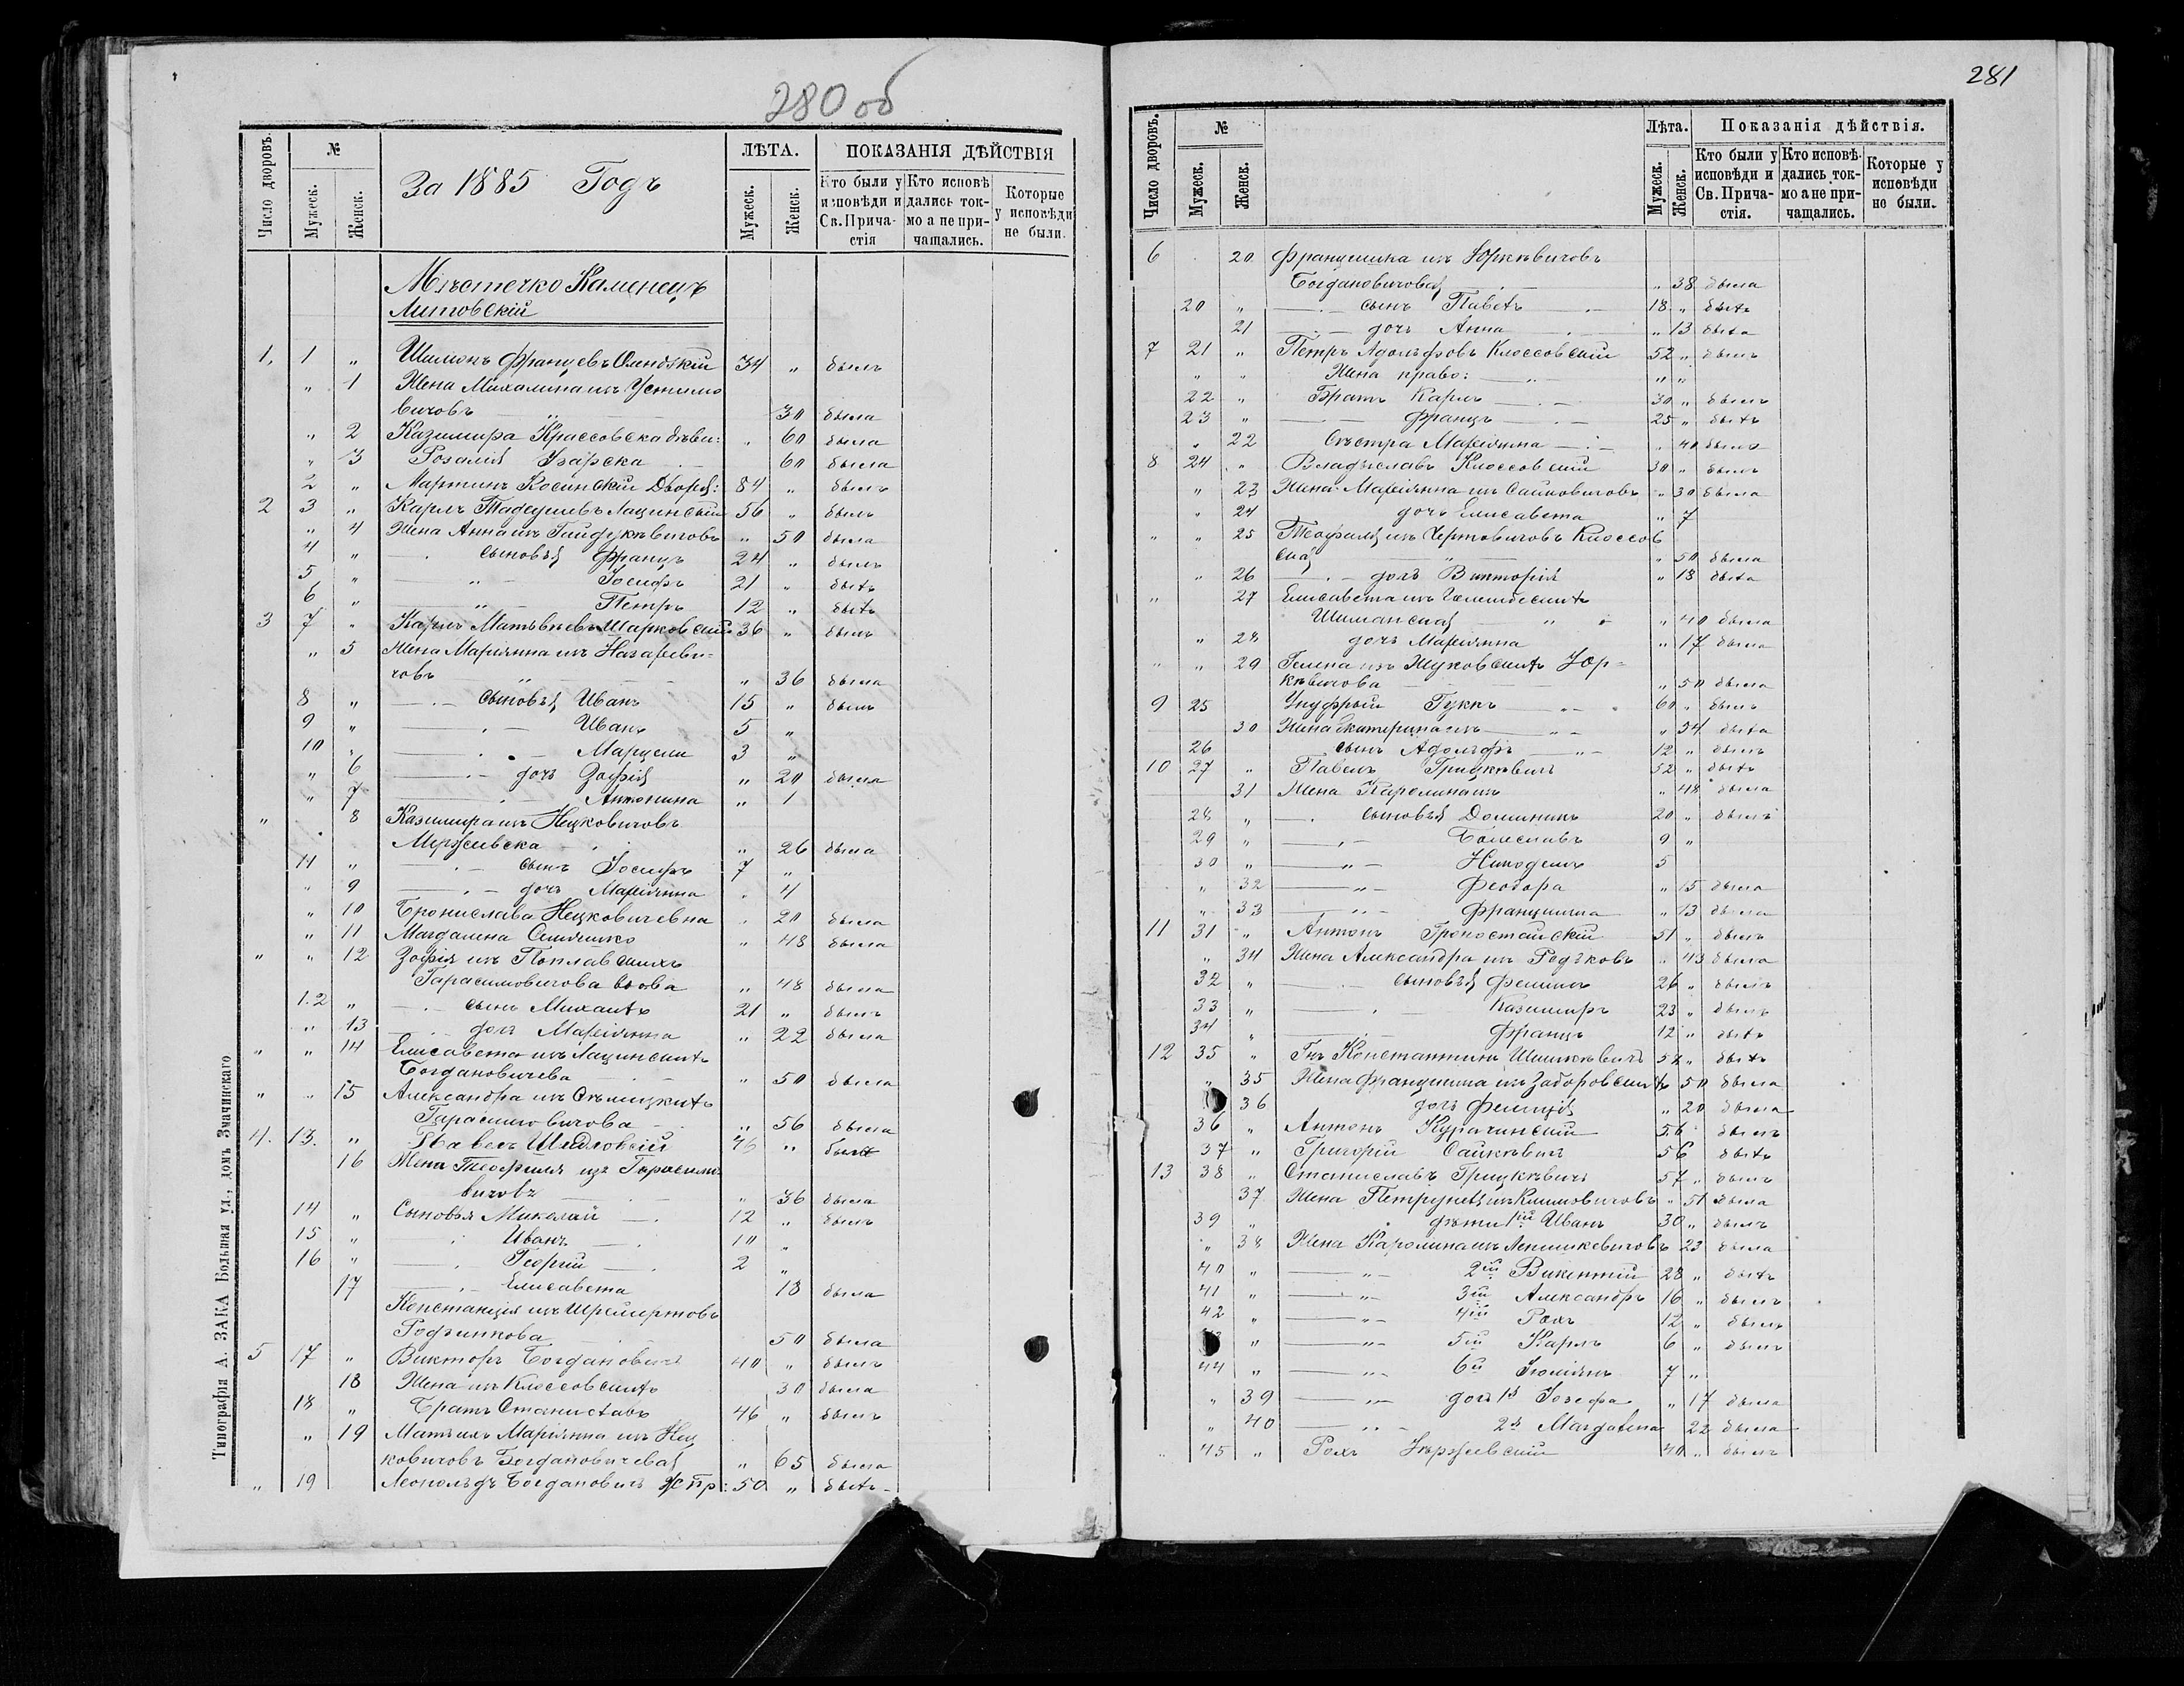 280 об
Число дворовъ.
№
Мужеск.
Женск.
За 1885 Годъ
ЛѢТА.
Мужеск.
Женск.
ПОКАЗАНІЯ ДѢЙСТВІЯ
Кто были у исповѣди и Св. Причастія
Кто исповѣдались токмо а не причащались.
Которые у исповѣди не были.
Мѣстечко Каменецъ
Литовскій
1. 1 „ Шимонъ Францевъ 34 „ былъ
„ 1 Жена Михалина изъ Устимо
вичовъ „ 30 была
„ 2 Казимира Крассовска дѣви: „ 60 была
„ 3 Розалія 60 была
2 „ Мартинъ Косинскій Дворя: 84 „ былъ
2 3 „ Карлъ Тадеушевъ Лацинскій 56 „ былъ
„ 4 Жена Анна изъ Гайдукѣвичовъ „ 50 была
4 „ сыновья Францъ 24 „ былъ
5 „ „ Іосифъ 21 „ былъ
6 „ „ Петръ 12 „ былъ
3 7 „ Карлъ Матѣвѣевъ Шарковскій 36 „ былъ
„ 5 Жена Маріянна изъ Назареви-
човъ „ „ 36 была
8 „ Сыновья Иванъ 15 „ былъ
9 „ Иванъ 5 „
10 „ Марцели 3 „
„ 6 дочь Зофія „ 20 была
„ 7 Антонина „ 1
„ 8 Казимира изъ Нецковичовъ
Миржевска „ 26 была
11 „ сынъ Іосифъ 7 „
„ 9 дочь Маріянна „ 4
„ 10 Бронислава Нецковичевна „ 20 была
„ 11 Магдалена Семяшко „ 48 была
„ „ 12 Зофія изъ Поплавскихъ
Гарасимовичова вдова „ 48 была
12 „ сынъ Михаилъ 21 „ былъ
„ 13 дочь Маріянна „ 22 была
„ „ 14 Елисавета изъ Лацинскихъ
Богдановичева „ 50 была
„ „ 15 Александра изъ
Гарасимовичова „ 56 была
4. 13. „ Павелъ Шидловскій 46 „ былъ
16 Жена Теофиля изъ Гарасими
вичовъ „ 36 была
14 „ Сыновья Миколай 12 „ былъ
15 „ Иванъ 10 „
16 „ Георгій 2 „
17 Елисавета 18 была
Констанція изъ Шреймртовъ
Родзинкова 50 была
5 17 „ Викторъ Богдановичъ 40 „ былъ
18 Жена изъ Клоссовскихъ 30 была
18 „ Братъ Станиславъ 46 „ былъ
„ 19 Матъ ихъ Маріянна изъ Нец
ковичовъ Богдановичевая „ 65 была
„ 19 Леопольдъ Богдановичъ Ж пр: 50 „ былъ
Типографія А. ЗАКА Большая ул., домъ Змачинскаго
281
Число дворовъ.
№
Мужеск.
Женск.
Лѣта.
Мужеск.
Женск.
Показанія дѣйствія.
Кто были у исповѣди и Св. Причастія.
Кто исповѣдались токмо а не причащались.
Которые у исповѣди не были.
6 20 Францишка изъ Юркѣвичовъ
Богдановичовая „ 38 была
20 „ сынъ Павелъ 18 „ былъ
21 дочь Анна „ 13 была
7 21 „ Петръ Адольфовъ Клоссовскій 52 „ былъ
„ „ Жена право: „ „ „
22 „ Братъ Карлъ 30 „ былъ
23 „ Францъ 25 „ былъ
„ 22 Сѣстра Маріянна „ 40 была
8 24 „ Владыславъ Клоссовскій 30 „ былъ
„ 23 Жена Маріянна изъ Сайковичовъ „ 30 была
„ 24 дочь Елисавета „ 7
„ „ 25 Теофиля изъ Чертовичовъ Клоссов
ская „ 50 была
„ 26 дочь Викторія „ 18 была
„ 27 Елисавета изъ
Шиманская „ „ 40 была
„ 28 дочь Маріянна „ 17 была
„ „ 29 Гелена изъ Жуковскихъ Юр-
кѣвичова „ 50 была
9 25 Унуфрый Гукъ 60 „ былъ
30 Жена Екатерина изъ „ 54 была
26 сынъ Адольфъ 12 „ былъ
10 27 „ Павелъ Грицкѣвичъ 52 „ былъ
31 Жена Каролина изъ „ 48 была
28 „ Сыновья Доминикъ 20 „ былъ
29 „ Болеславъ 9 „
30 „ „ Никодемъ 5
„ 32 „ Феодора „ 15 была
„ 33 „ Францишка „ 13 была
11 31 „ Антонъ Гроностайскій 51 „ былъ
„ 34 Жена Александра изъ Редзковъ „ 43 была
32 „ сыновья Феликсъ 26 „ былъ
33 „ Казимиръ 23 „ былъ
34 „ Францъ 12 „ былъ
12 35 „ Гнъ Константинъ Шишкѣвичъ 52 „ былъ
„ 35 Жена Францишка изъ Заборовскихъ 50 была
36 дочь Фелиція „ 20 была
36 „ Антонъ Курачинскій 56 былъ
37 „ Григорій Сайкѣвичъ 56 былъ
13 38 „ Станиславъ Грицкѣвичъ 57 „ былъ
37 Жена Петрунеля изъ Климовичовъ „ 51 была
39 „ дѣти 1ій Иванъ 30 „ былъ
„ 38 Жена Каролина изъ Лешикевичовъ 23 была
40 „ „ 2ій Викентій 28 „ былъ
41 „ „ 3ій Александръ 16 „ былъ
42 „ „ 4ій Рохъ 12 „ былъ
„ „ 5ій Карлъ 6 „ былъ
44 „ 6й Юліянъ 7 „
„ 39 „ дочь 1я Іозефа „ 17 была
„ 40 2я Магдалена 22 была
„ 45 „ Рохъ 40 „ былъ